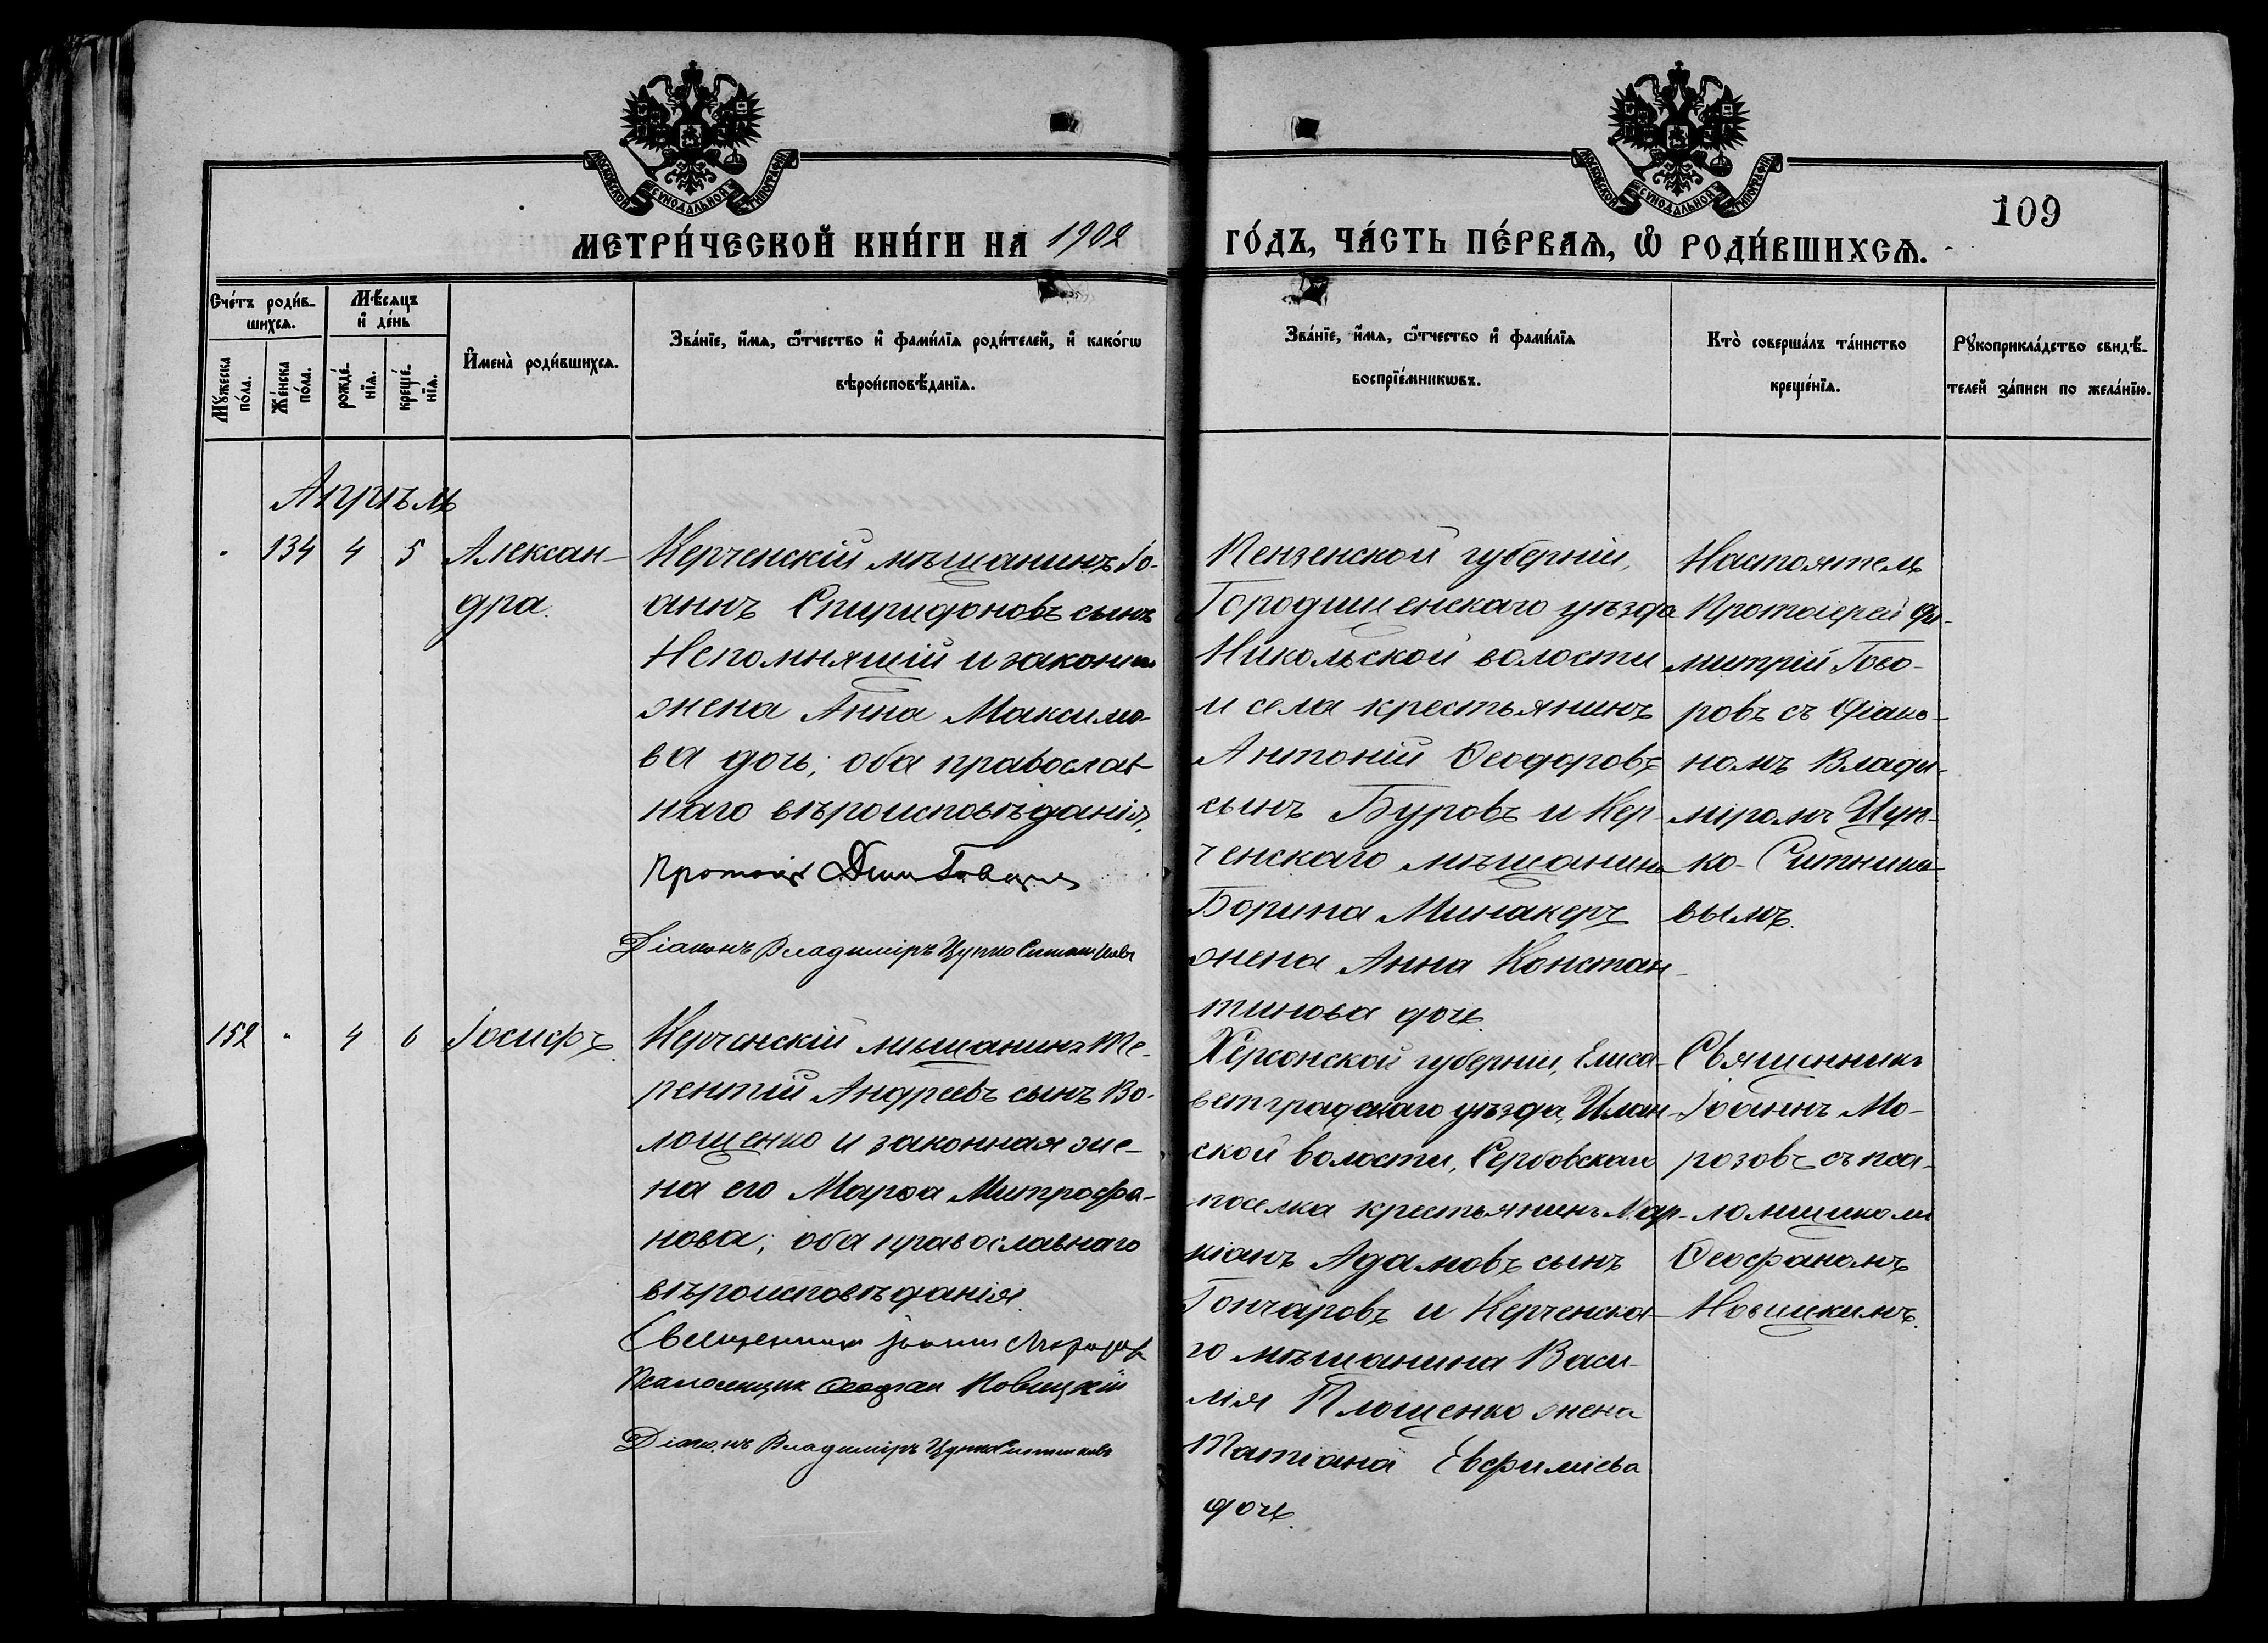 МОСКОВСКОЙ СѴНОДАЛЬНОЙ ТИПОГРАФІИ
МОСКОВСКОЙ СѴНОДАЛЬНОЙ ТИПОГРАФІИ
109
МЕТРИ́ЧЕСКОЙ КНИ́ГИ НА 1902
ГО́ДЪ, ЧА́СТЬ ПЕ́РВАѦ, Ѡ҆ РОДИ́ВШИХСѦ.
Сче́тъ роди́в-
шихсѧ.
Мѣ́сѧцъ
и҆ де́нь
Мꙋ́жеска
по́ла.
Же́нска
по́ла.
рожде́-
нїѧ.
креще́-
нїѧ.
И҆мена̀ роди́вшихсѧ.
Зва́нїе, и҆́мѧ, ѻ҆́тчество и҆ фами́лїѧ роди́телей, и҆ како́гѡ
вѣроисповѣ́данїѧ.
Зва́нїе, и҆́мѧ, ѻ҆́тчество и҆ фами́лїѧ
воспрїе́мникѡвъ.
Кто̀ соверша́лъ та́инство
креще́нїѧ.
Рꙋкоприкла́дство свидѣ́-
телей за́писи по жела́нїю.
Апрѣль
" 134 4 5 Алексан-
дра.
Керченскій мѣщанинъ Іо-
аннъ Спиридоновъ сынъ
Непомнящій и законная
жена Анна Максимо-
ва дочь; оба православ-
наго вѣроисповѣданія.
Діаконъ Владиміръ Цупко Ситниковъ
Пензенской губерніи,
Городищенскаго уѣзда
Никольской волости
и села крестьянинъ
Антоній Ѳеодоровъ
сынъ Буровъ и Кер-
ченскаго мѣщанина
Бориса Минакеръ
жена Анна Констан-
тинова дочь.
Настоятель
Протоіерей Ди-
митрій Гово-
ровъ съ діако-
номъ Влади-
міромъ Цуп-
ко-Ситнико-
вымъ.
152 " 4 6 Іосифъ.
Керченскій мѣщанинъ Те-
рентій Андреевъ сынъ Во-
лощенко и законная же-
на его Марѳа Митрофа-
нова; оба православнаго
вѣроисповѣданія.
Священникъ Іоаннъ Морозовъ
Псаломщик Ѳеофан Новицкій
Діаконъ Владиміръ Цупко Ситниковъ
Херсонской губерніи, Елиса-
ветградскаго уѣзда,
ской волости, Сербовскаго
поселка крестьянинъ Мар-
кіанъ Адамовъ сынъ
Гончаровъ и Керченска-
го мѣщанина Васи-
лія Площенко жена
Татіана Евфиміева
дочь.
Священникъ
Іоаннъ Мо-
розовъ съ пса-
ломщикомъ
Ѳеофаномъ
Новицкимъ.